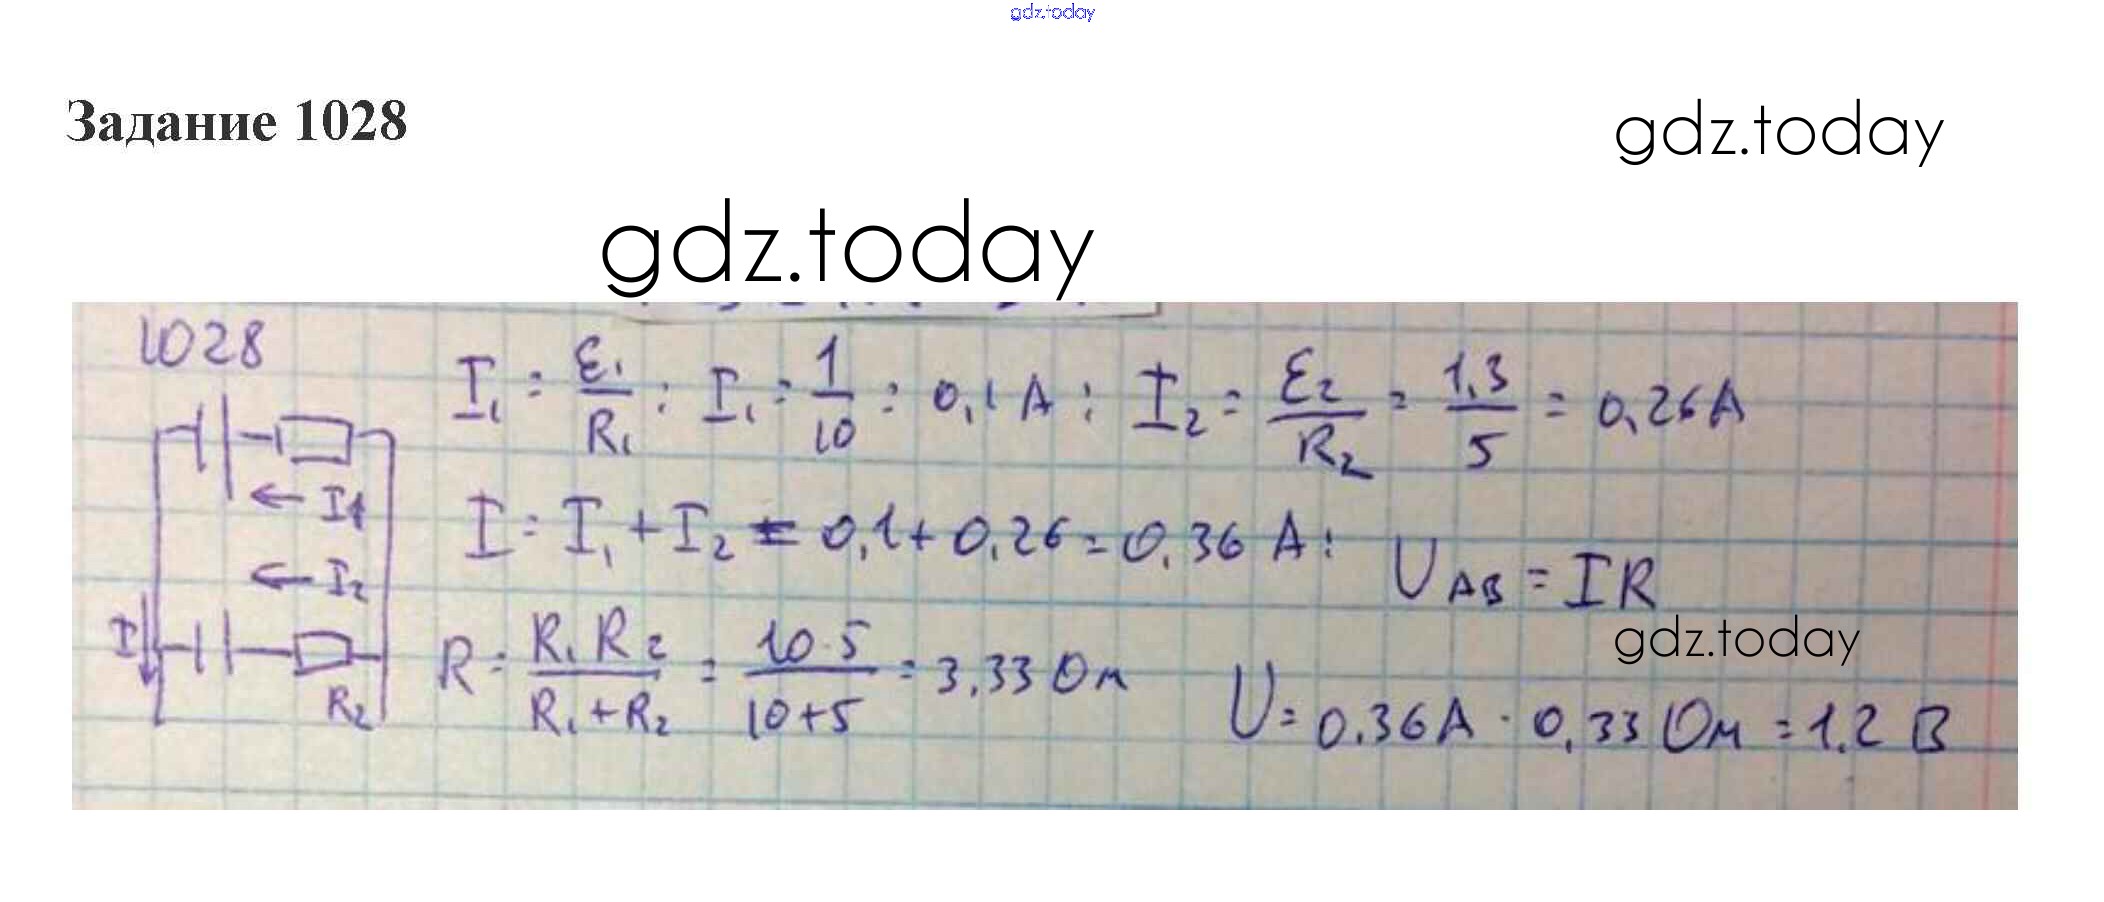 gdz.today
Задание 1028
gdz.today
gdz.today
1028
I₁ = ε₁/R₁ ; I₁ = 1/10 = 0,1 А ; I₂ = ε₂/R₂ = 1,3/5 = 0,26 А
I1
I = I₁ + I₂ = 0,1 + 0,26 = 0,36 А ; U_AB = IR
I₂
gdz.today
I
R = R₁R₂/(R₁+R₂) = 10·5/(10+5) = 3,33 Ом
R₂
U = 0,36 А · 0,33 Ом = 1,2 В